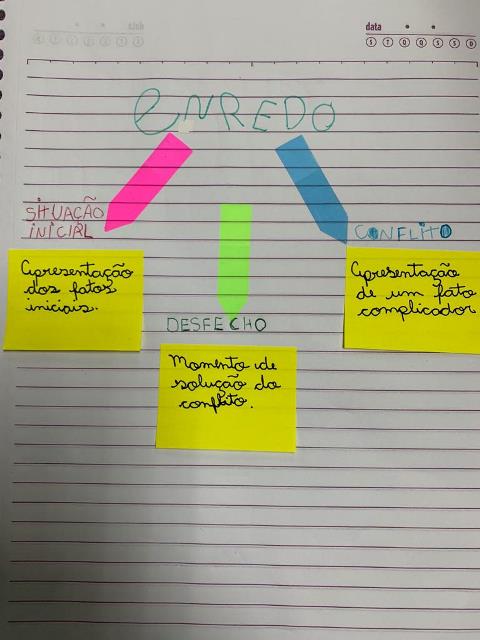 data
S T Q Q S S D
ENREDO
SITUAÇÃO
INICIAL
Apresentação
dos fatos
iniciais.
DESFECHO
Momento de
solução do
conflito.
CONFLITO
Apresentação
de um fato
complicador